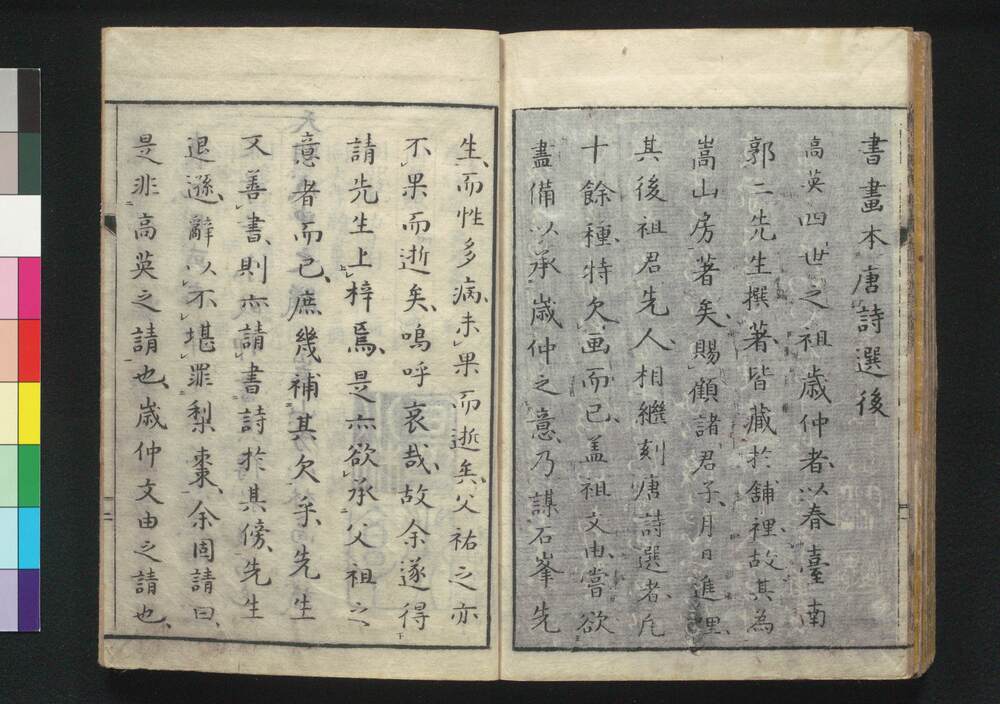 書畫本唐詩選後
高英四世之祖歳仲者以春臺南
郭二先生撰著皆藏於舗裡故其為
嵩山房著矣賜顧諸君子月日進埋
其後祖君先人相繼刻唐詩選者凡
十餘種特欠画而已盖祖文由嘗欲
畵備以承歳仲之意乃謀石峯先
生而性多病未果而逝矣父祐之亦
不果而逝矣嗚呼哀哉故余遂得
請先生上梓焉是亦欲承父祖之
意者而已庶幾補其欠乎先生
又善書則亦請書詩於其傍先生
退遜辭以不堪罪梨棗余固請曰
是非高英之請也歳仲文由之請也